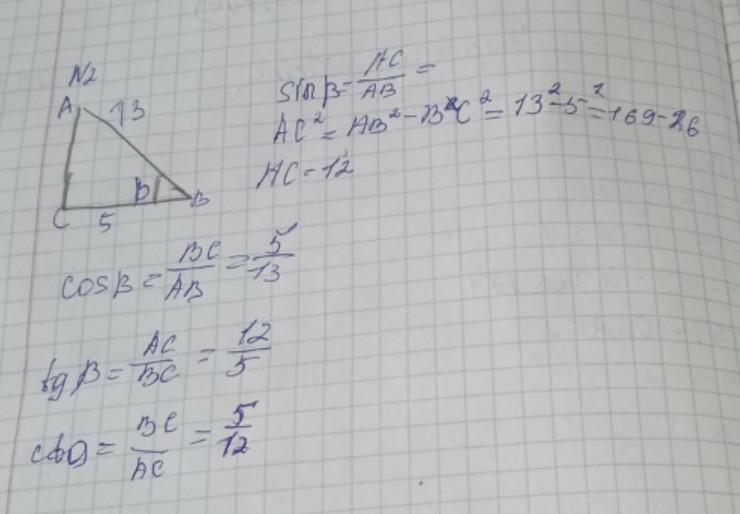 N2
A 13
B B
C 5
sinβ = AC/AB =
AC² = AB² - B²C² = 13² - 5² = 169 - 26
AC = 12
cosβ = BC/AB = 5/13
tgβ = AC/BC = 12/5
ctg = BC/AC = 5/12